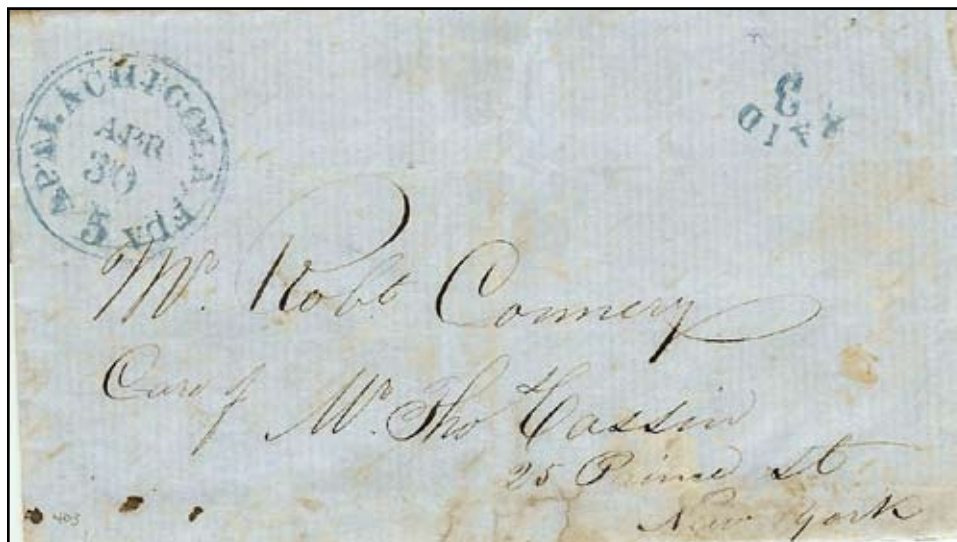 APALACHICOLA FLA 5
APR
30
3
PAID
Mr. Robt Connery
Care of
Mr. Tho Cassin
25 Prince St
New York
403